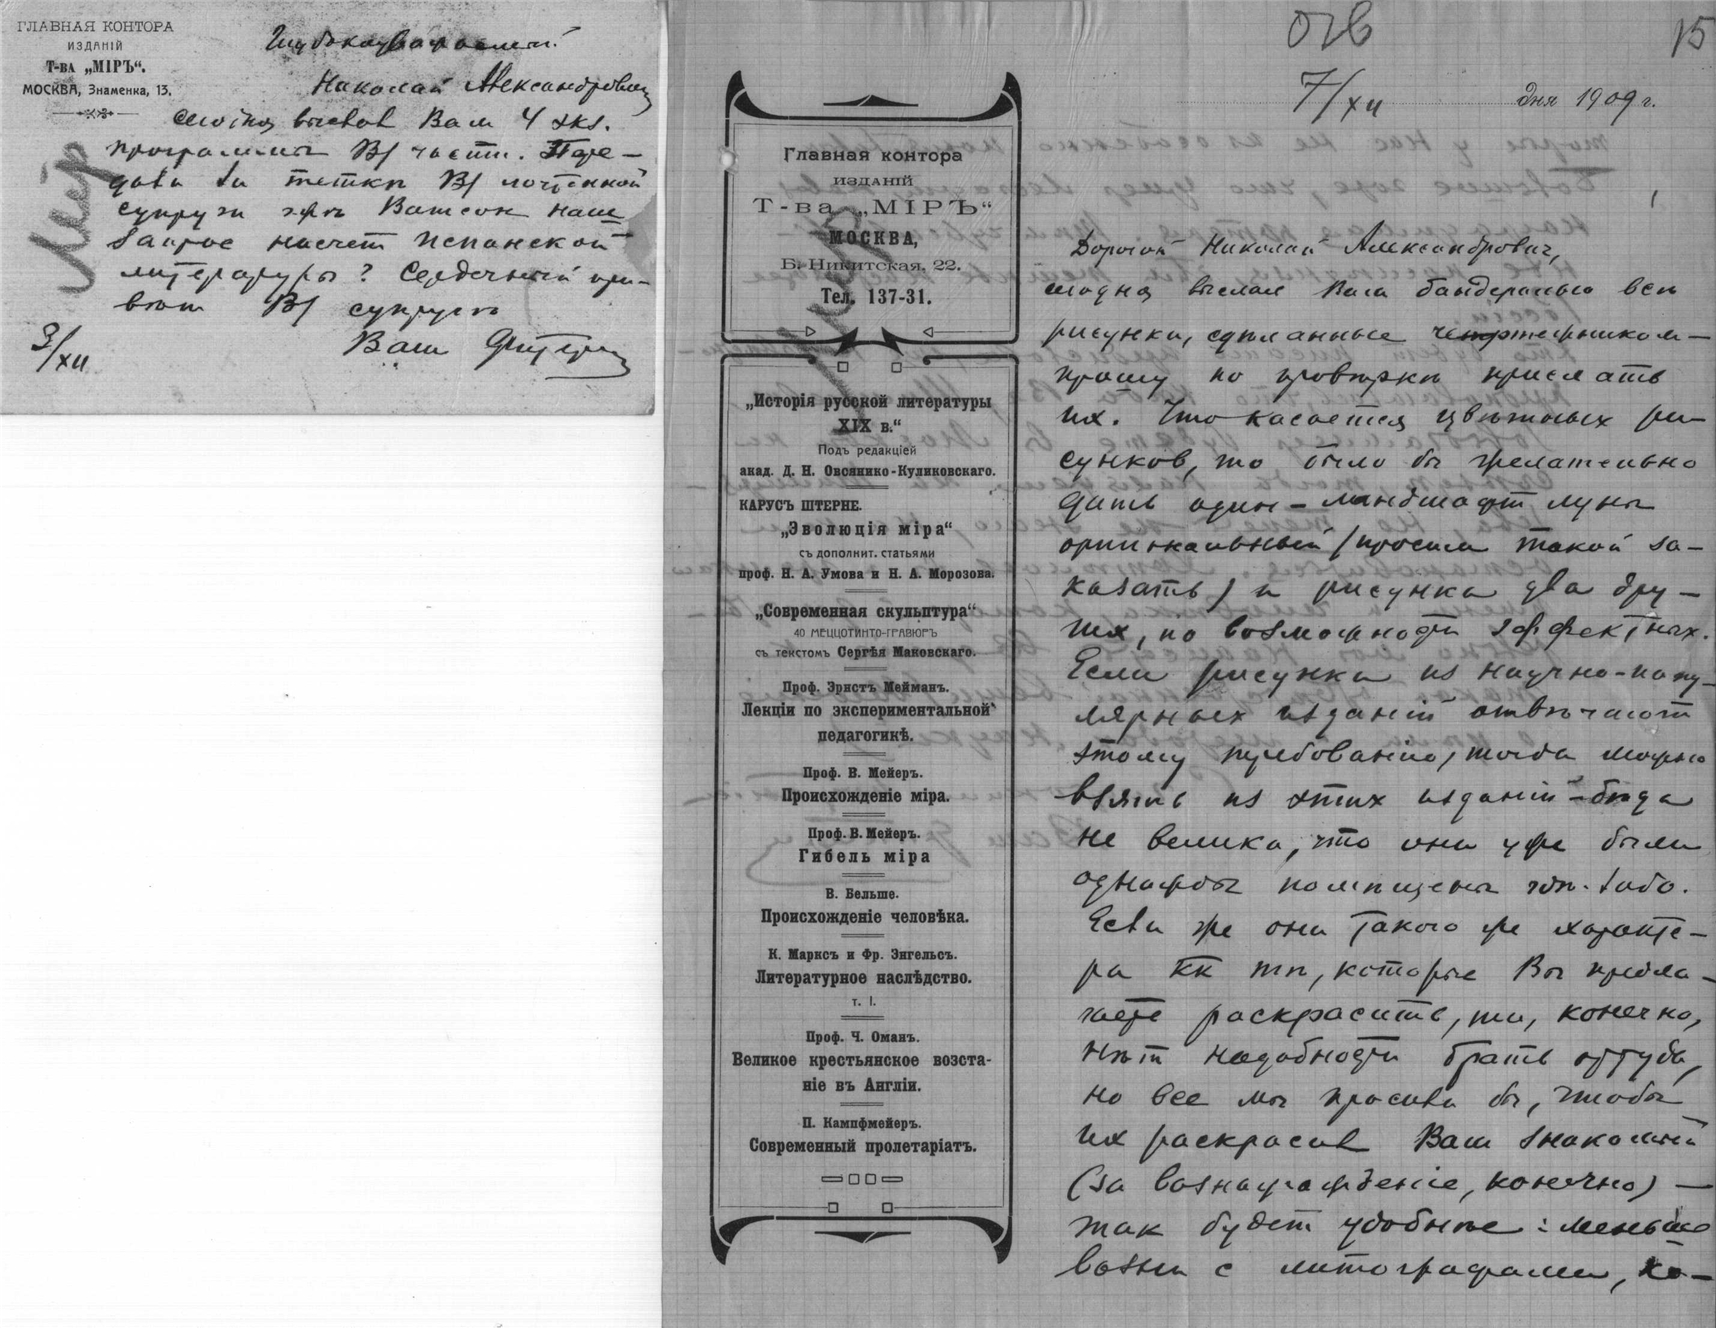 ГЛАВНАЯ КОНТОРА
ИЗДАНІЙ
Т-ва „МІРЪ“.
МОСКВА, Знаменка, 13.
Глубокоуважаемый
Николай Александрович
сегодня выслал Вам 4 экз.
программы В/ части. Пере-
дали ли тетки В/ почтенной
супруги г-жѣ Ватсон наш
запрос насчет Испанской
литературы? Сердечный при-
вѣт В/ супругѣ
Ваш
3/XII
Мір
отв
15
7/XII дня 1909 г.
Главная контора
ИЗДАНІЙ
Т-ва „МІРЪ“
МОСКВА,
Б. Никитская, 22.
Тел. 137-31.
„Исторія русской литературы
XIX в.“
Подъ редакціей
акад. Д. Н. Овсянико-Куликовскаго.
КАРУСЪ ШТЕРНЕ.
„Эволюція міра“
съ дополнит. статьями
проф. Н. А. Умова и Н. А. Морозова.
„Современная скульптура“
40 МЕЦЦОТИНТО-ГРАВЮРЪ
съ текстомъ Сергѣя Маковскаго.
Проф. Эрнстъ Мейманъ.
Лекціи по экспериментальной
педагогикѣ.
Проф. В. Мейеръ.
Происхожденіе міра.
Проф. В. Мейеръ.
Гибель міра
В. Бельше.
Происхожденіе человѣка.
К. Марксъ и Фр. Энгельсъ.
Литературное наслѣдство.
т. I.
Проф. Ч. Оманъ.
Великое крестьянское возста-
ніе въ Англіи.
П. Кампфмейеръ.
Современный пролетаріатъ.
Дорогой Николай Александрович,
сегодня выслал Вам бандеролью всѣ
рисунки, сдѣланные чертежником-
прошу по провѣркѣ прислать
их. Что касается цвѣтных ри-
сунков, то было бы желательно
дать один - ландшафт луны
оригинальный (просим такой за-
казать) и рисунка два дру-
гих, по возможности эффектных.
Если рисунки из научно-попу-
лярных изданій отвѣчают
этому требованію, тогда можно
взять из этих изданій - бѣда
не велика, что они уже были
однажды помѣщены гдѣ-либо.
Если же они такого же характе-
ра кк тѣ, которые Вы предла-
гаете раскрасить, то, конечно,
нѣт надобности брать оттуда,
но все мы просили бы, чтобы
их раскрасил Ваш знакомый
(за вознагражденіе, конечно) —
так будет удобнѣе: меньше
возни с литографами, ко-